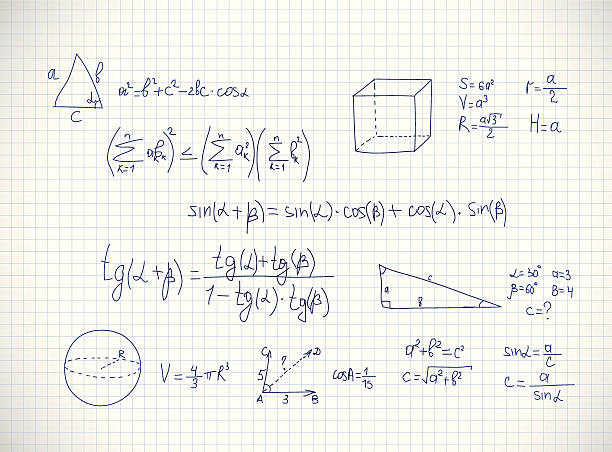 a b c α
a²=b²+c²-2bc·cosα
S=6a²
V=a³
R=a√3/2
r=a/2
H=a
(∑ⁿₖ₌₁ aₖbₖ)² ≤ (∑ⁿₖ₌₁ aₖ²)(∑ⁿₖ₌₁ bₖ²)
sin(α+β)=sin(α)·cos(β)+cos(α)·sin(β)
tg(α+β)=tg(α)+tg(β)/1-tg(α)·tg(β)
a c b
α=30° a=3
β=60° b=4
c=?
R
V=4/3πR³
C ? D
5
A 3 B
cosA=1/15
a²+b²=c²
c=√a²+b²
sinα=a/c
c=a/sinα